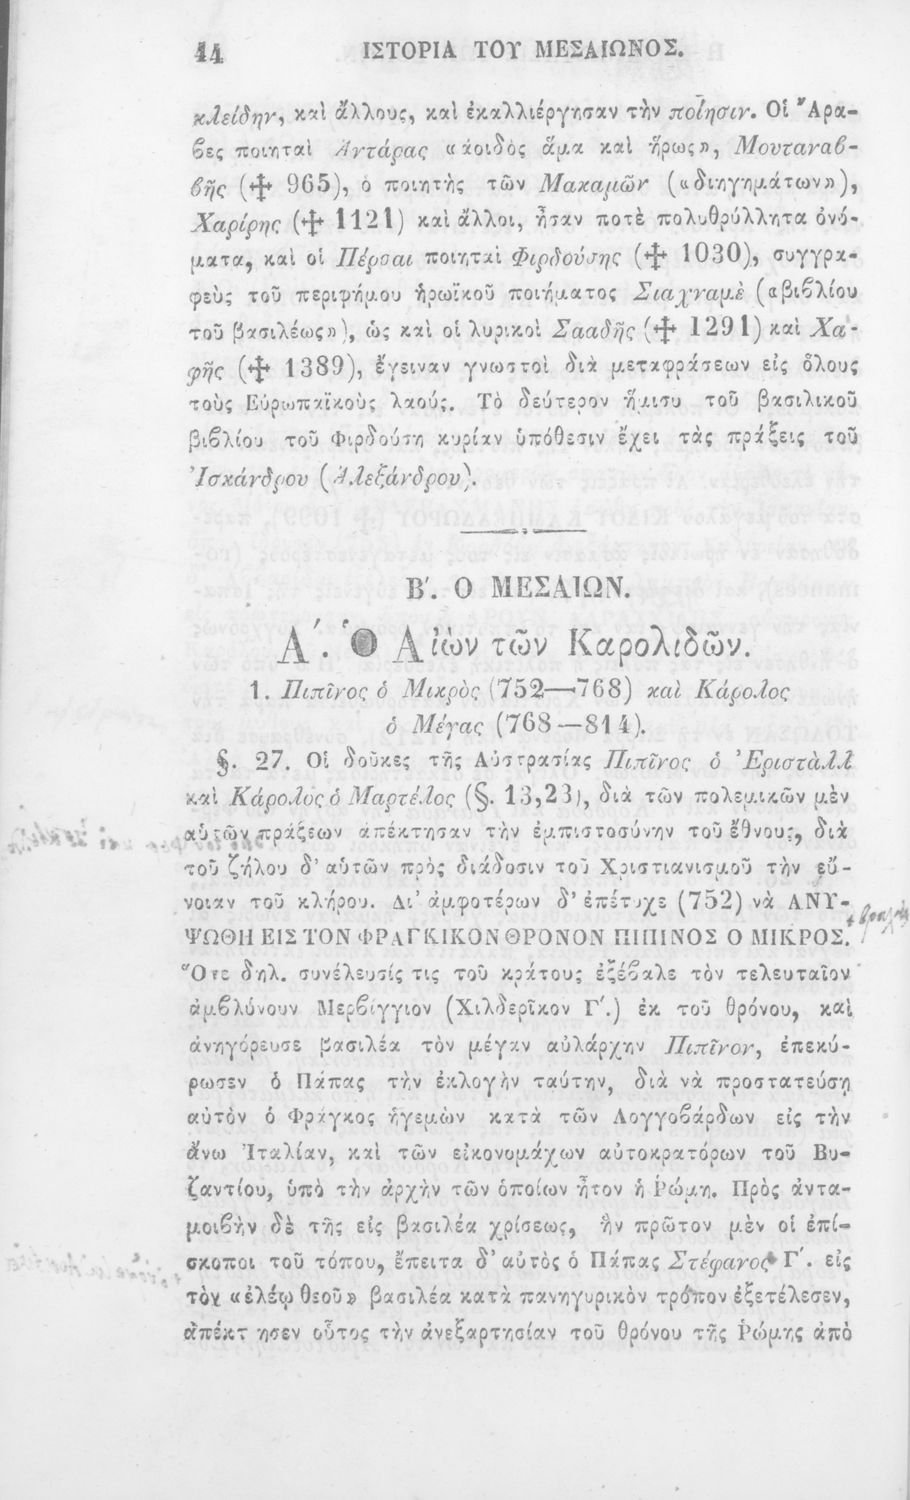 44 ΙΣΤΟΡΙΑ ΤΟΥ ΜΕΣΑΙΩΝΟΣ.
κλείδην, καὶ ἄλλους, καὶ ἐκαλλιέργησαν τὴν ποίησιν. Οἱ Ἄρα-
βες ποιηταὶ Ἀντάρας «ἀοιδὸς ἅμα καὶ ἥρως», Μουταναβ-
βῆς (✝ 965), ὁ ποιητὴς τῶν Μακαμῶν («διηγημάτων»),
Χαρίρης (✝ 1121) καὶ ἄλλοι, ἦσαν ποτὲ πολυθρύλλητα ὀνό-
ματα, καὶ οἱ Πέρσαι ποιηταὶ Φιρδούσης (✝ 1030), συγγρα-
φεὺς τοῦ περιφήμου ἡρωϊκοῦ ποιήματος Σιαχναμὲ («βιβλίου
τοῦ βασιλέως»), ὡς καὶ οἱ λυρικοὶ Σααδῆς (✝ 1291) καὶ Χα-
φῆς (✝ 1389), ἔγειναν γνωστοὶ διὰ μεταφράσεων εἰς ὅλους
τοὺς Εὐρωπαϊκοὺς λαούς. Τὸ δεύτερον ἥμισυ τοῦ βασιλικοῦ
βιβλίου τοῦ Φιρδούση κυρίαν ὑπόθεσιν ἔχει τὰς πράξεις τοῦ
Ἰσκάνδρου (Ἀλεξάνδρου).
Β΄. Ο ΜΕΣΑΙΩΝ.
Α΄. Ὁ Αἰὼν τῶν Καρολιδῶν.
1. Πιπῖνος ὁ Μικρὸς (752—768) καὶ Κάρολος
ὁ Μέγας (768—814).
§. 27. Οἱ δοῦκες τῆς Αὐστρασίας Πιπῖνος ὁ Ἐριστὰλλ
καὶ Κάρολος ὁ Μαρτέλος (§. 13,23), διὰ τῶν πολεμικῶν μὲν
αὐτῶν πράξεων ἀπέκτησαν τὴν ἐμπιστοσύνην τοῦ ἔθνους, διὰ
τοῦ ζήλου δ' αὐτῶν πρὸς διάδοσιν τοῦ Χριστιανισμοῦ τὴν εὔ-
νοιαν τοῦ κλήρου. Δι' ἀμφοτέρων δ' ἐπέτυχε (752) νὰ ΑΝΥ-
ΨΩΘΗ ΕΙΣ ΤΟΝ ΦΡΑΓΚΙΚΟΝ ΘΡΟΝΟΝ ΠΙΠΙΝΟΣ Ο ΜΙΚΡΟΣ.
Ὅτε δηλ. συνέλευσίς τις τοῦ κράτους ἐξέβαλε τὸν τελευταῖον
ἀμβλύνουν Μερβίγγιον (Χιλδερῖκον Γ΄.) ἐκ τοῦ θρόνου, καὶ
ἀνηγόρευσε βασιλέα τὸν μέγαν αὐλάρχην Πιπῖνον, ἐπεκύ-
ρωσεν ὁ Πάπας τὴν ἐκλογὴν ταύτην, διὰ νὰ προστατεύσῃ
αὐτὸν ὁ Φράγκος ἡγεμὼν κατὰ τῶν Λογγοβάρδων εἰς τὴν
ἄνω Ἰταλίαν, καὶ τῶν εἰκονομάχων αὐτοκρατόρων τοῦ Βυ-
ζαντίου, ὑπὸ τὴν ἀρχὴν τῶν ὁποίων ἦτον ἡ Ῥώμη. Πρὸς ἀντα-
μοιβὴν δὲ τῆς εἰς βασιλέα χρίσεως, ἣν πρῶτον μὲν οἱ ἐπί-
σκοποι τοῦ τόπου, ἔπειτα δ' αὐτὸς ὁ Πάπας Στέφανος Γ΄. εἰς
τὸν «ἐλέῳ θεοῦ» βασιλέα κατὰ πανηγυρικὸν τρόπον ἐξετέλεσεν,
ἀπέκτησεν οὗτος τὴν ἀνεξαρτησίαν τοῦ θρόνου τῆς Ῥώμης ἀπὸ